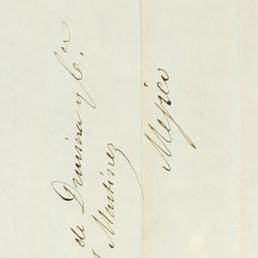 de Drusina y Cª.
Martinez
Mejico